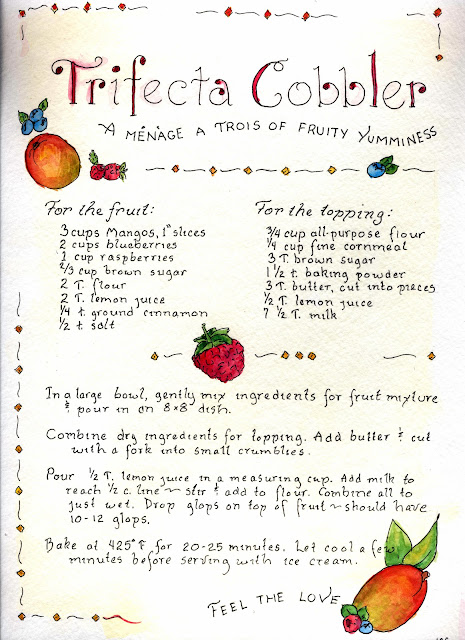 Trifecta Cobbler
A MÉNAGE A TROIS OF FRUITY YUMMINESS
For the fruit:
3 cups Mangos, 1" slices
2 cups blueberries
1 cup raspberries
2/3 cup brown sugar
2 T. flour
2 T. lemon juice
1/4 t. ground cinnamon
1/2 t. salt
For the topping:
3/4 cup all-purpose flour
1/4 cup fine cornmeal
3 T. brown sugar
1 1/2 t. baking powder
3 T. butter, cut into pieces
1/2 T. lemon juice
7 1/2 T. milk
In a large bowl, gently mix ingredients for fruit mixture
& pour in on 8x8" dish.
Combine dry ingredients for topping. Add butter & cut
with a fork into small crumblies.
Pour 1/2 T. lemon juice in a measuring cup. Add milk to
reach 1/2 c. line ~ stir & add to flour. Combine all to
just wet. Drop glops on top of fruit ~ should have
10-12 glops.
Bake at 425° F for 20-25 minutes. Let cool a few
minutes before serving with ice cream.
FEEL THE LOVE